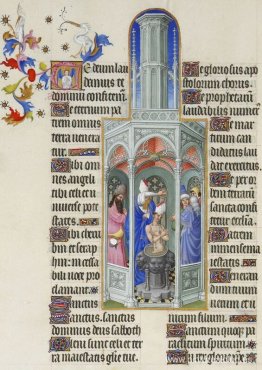 Te deum lau
damus te
dominum confitem
Te eternum pa
trem omnis
terra venera
tur
Tibi om
nes angeli
tibi celi et
universe potes
tates
Tibi cheru
bin et seraph
im incessa
bili voce pro
clamant
Sanctus
Sanctus sanctus
dominus deus sabaoth
Pleni sunt celi et ter
ra maiestatis glorie tue
Te gloriosus apos
tolorum chorus
Te prophetarum
laudabilis numerus
Te mar
tirum can
didatus lau
dat exercitus
Te per or
bem terrarum
sancta confi
tetur ecclesia
Patrem
immense ma
iestatis
Veneran
dum tuum
verum et u
nicum filium
Sanctum quoque pa
raclitum spiritum
Tu rex glorie xpe